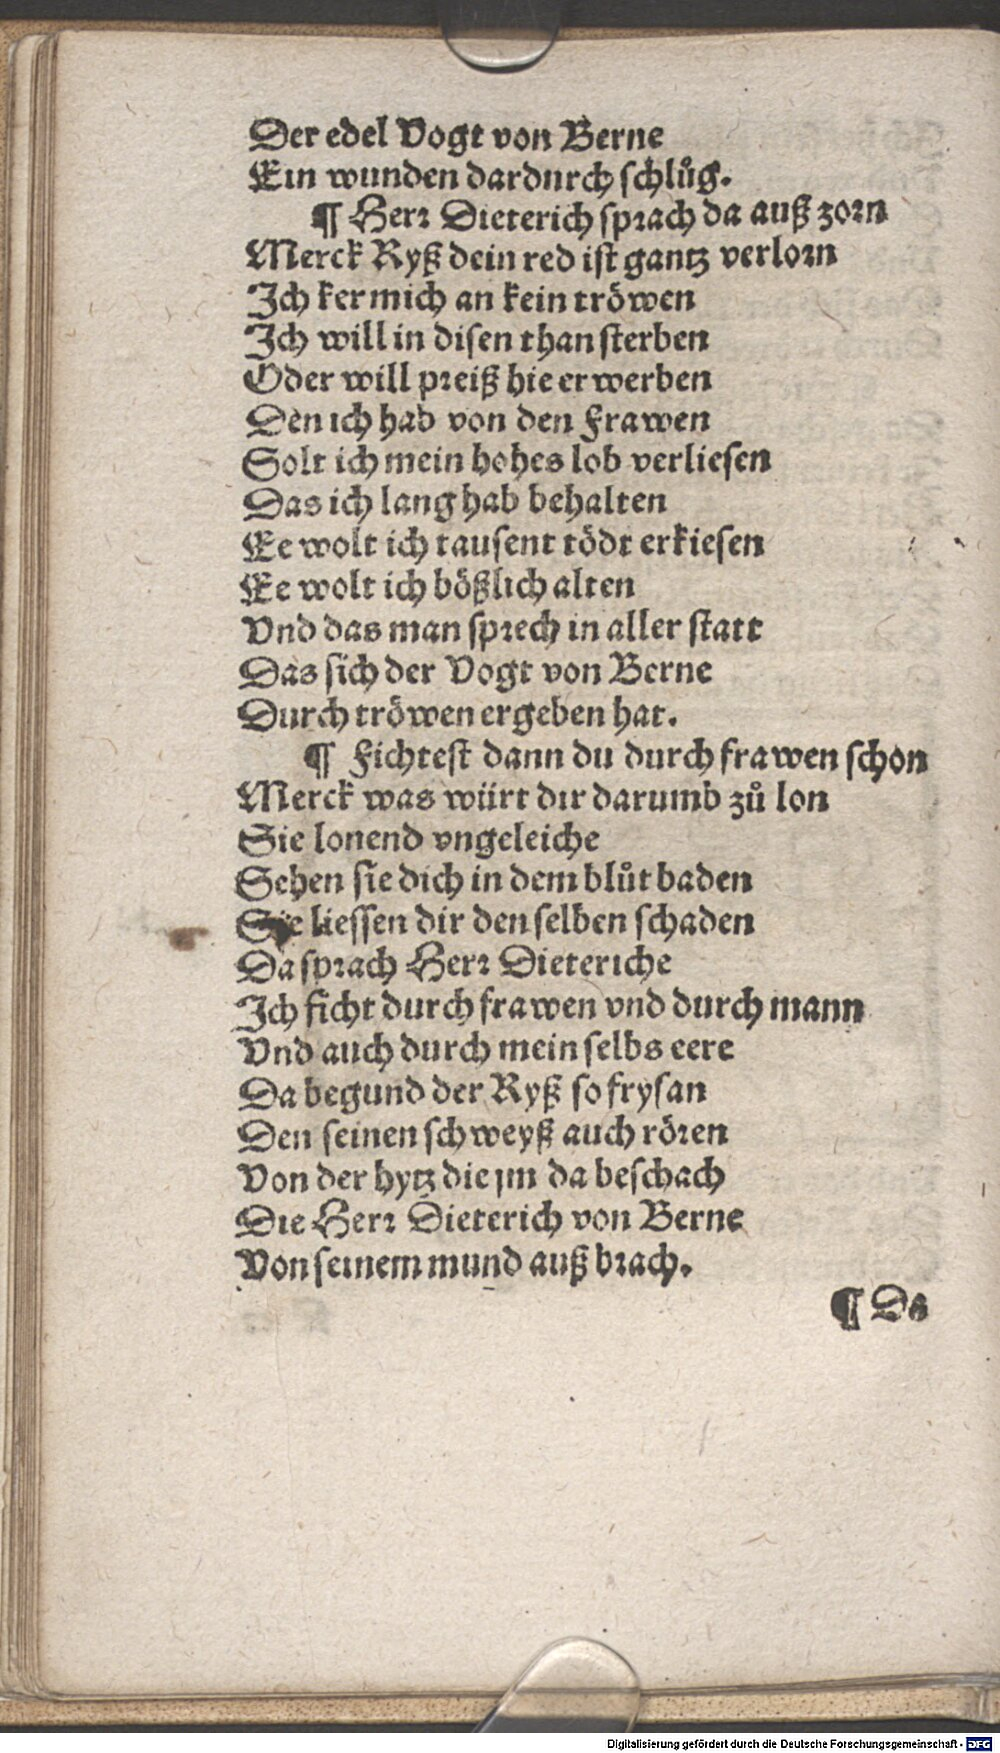 Der edel Vogt von Berne
Ein wunden dardurch schlůg.
¶ Herr Dieterich sprach da auß zorn
Merck Ryß dein red ist gantz verlorn
Ich ker mich an kein tröwen
Ich will in disen than sterben
Oder will preiß hie erwerben
Den ich hab von den Frawen
Solt ich mein hohes lob verliesen
Das ich lang hab behalten
Ee wolt ich tausent tödt erkiesen
Ee wolt ich bößlich alten
Vnd das man sprech in aller statt
Das sich der Vogt von Berne
Durch tröwen ergeben hat.
¶ Fichtest dann du durch frawen schon
Merck was würt dir darumb zů lon
Sie lonend vngeleiche
Sehen sie dich in dem blůt baden
Sie liessen dir den selben schaden
Da sprach Herr Dieteriche
Ich ficht durch frawen vnd durch mann
Vnd auch durch mein selbs eere
Da begund der Ryß so frysan
Den seinen schweyß auch rören
Von der hytz die jm da beschach
Die Herr Dieterich von Berne
Von seinem mund auß brach.
¶ Da
Digitalisierung gefördert durch die Deutsche Forschungsgemeinschaft - DFG